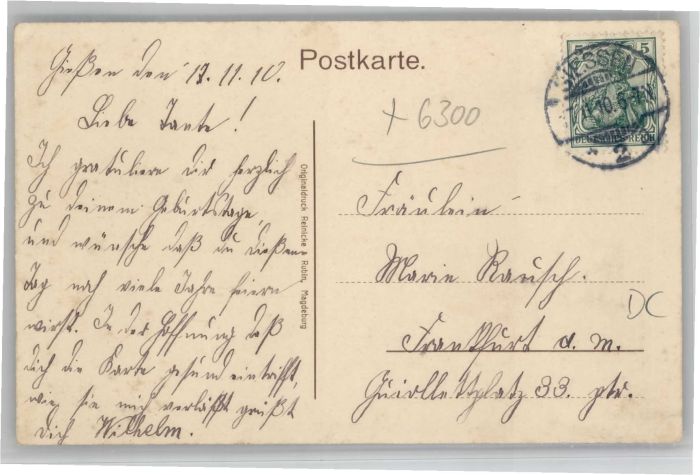 Postkarte.
Gießen den 17.11.10.
Liebe Tante!
Ich gratuliere dir herzlich
zu deinem Geburtstage
und wünsche daß du diesen
Tag noch viele Jahre feiern
wirst. In der Hoffnung daß
dich die Karte gesund eintrifft,
wie sie mich verläßt grüßt
dich Wilhelm.
Originaldruck Reinicke & Rubin, Magdeburg
+ 6300
5 5
DEUTSCHES REICH
GIESSEN
2
Fräulein
Marie Rausch.
Frankfurt a. m.
Guiollettplatz 33. ptr.
DC